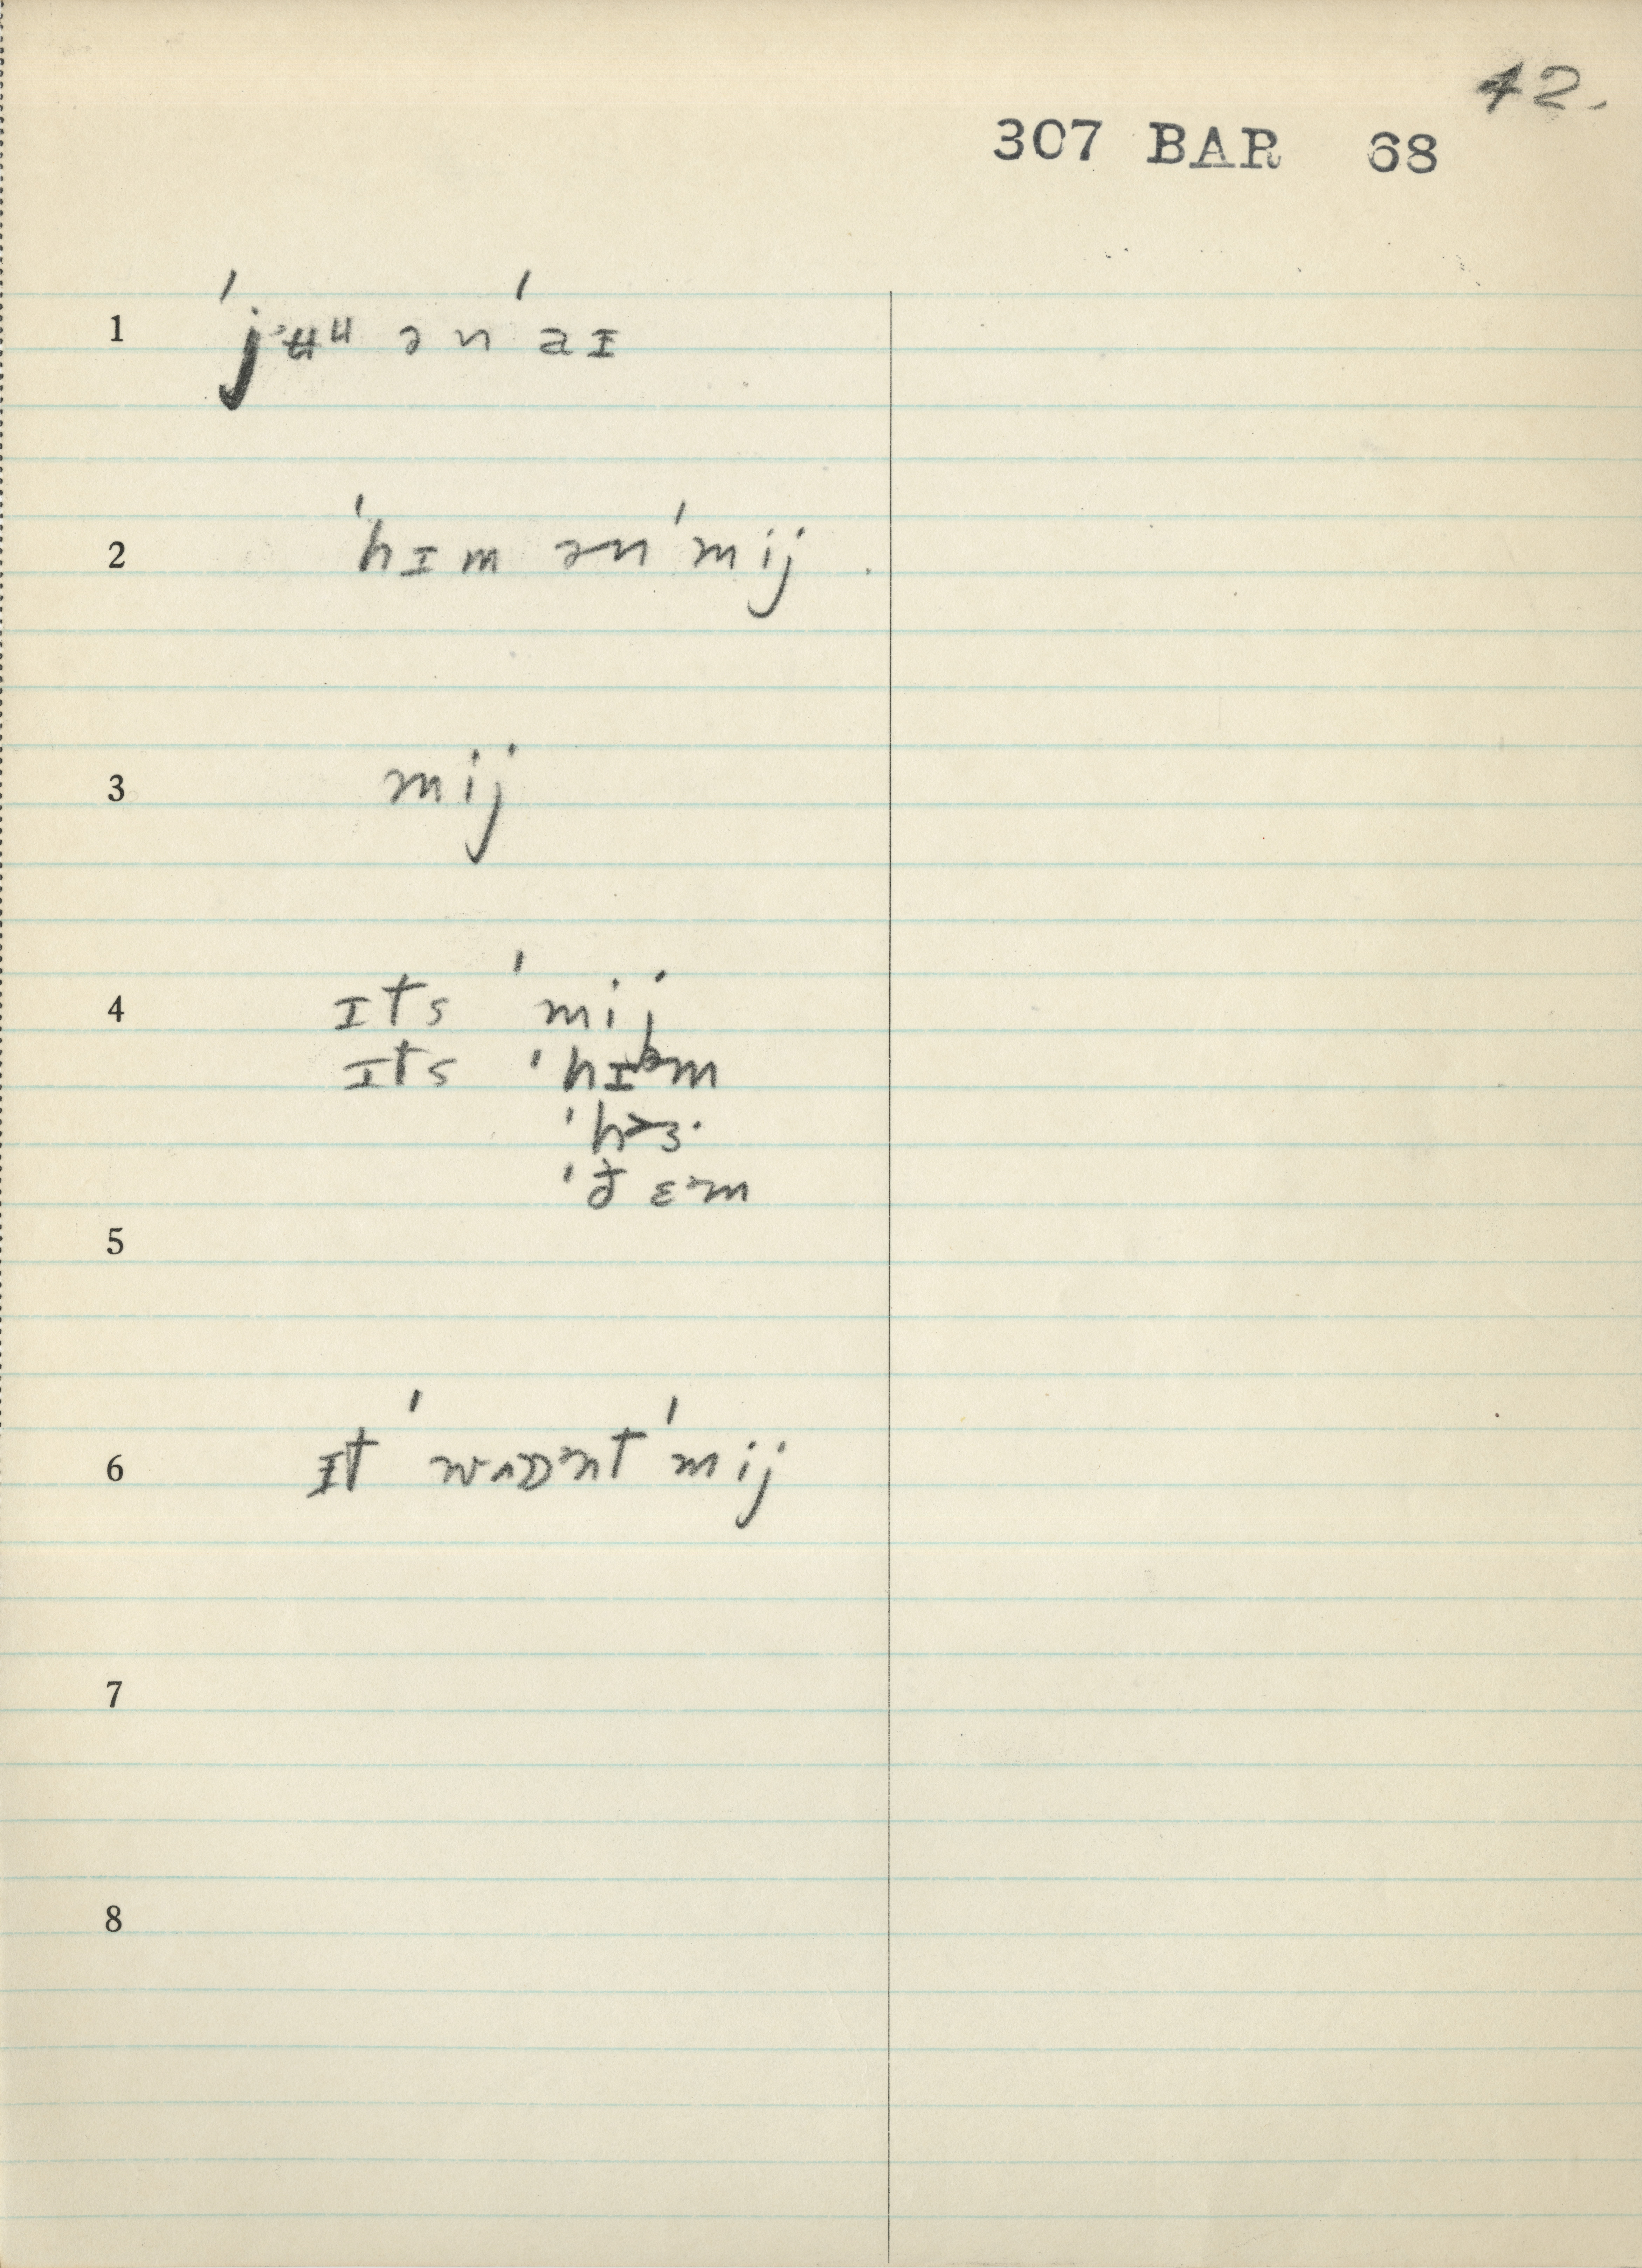 42.
307 BAR 68
1 ˈjʉu ənˈaɪ
2 ˈhɪm ənˈmij
3 mij
4 ɪts ˈmij
ɪts ˈhɪᵊm
ˈhɜ·
ˈðɛᵊm
5
6 ɪt ˈwʌznt ˈmij
7
8